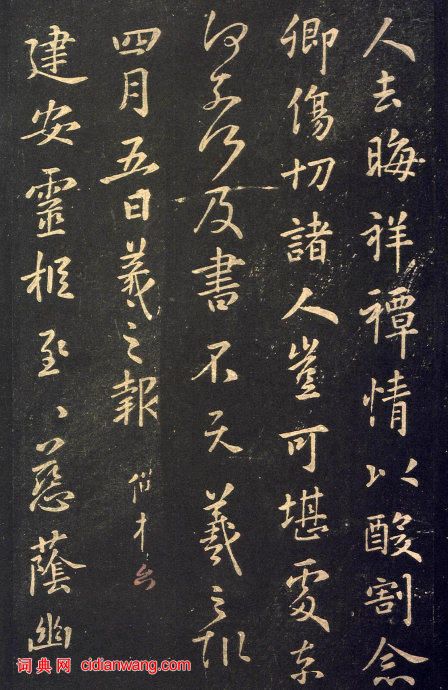 人去晦祥禫情以酸割念
卿傷切諸人豈可堪處奈
何奈何及書不羲之
四月五日羲之報
建安靈柩至慈蔭幽
词典网 cidianwang.com